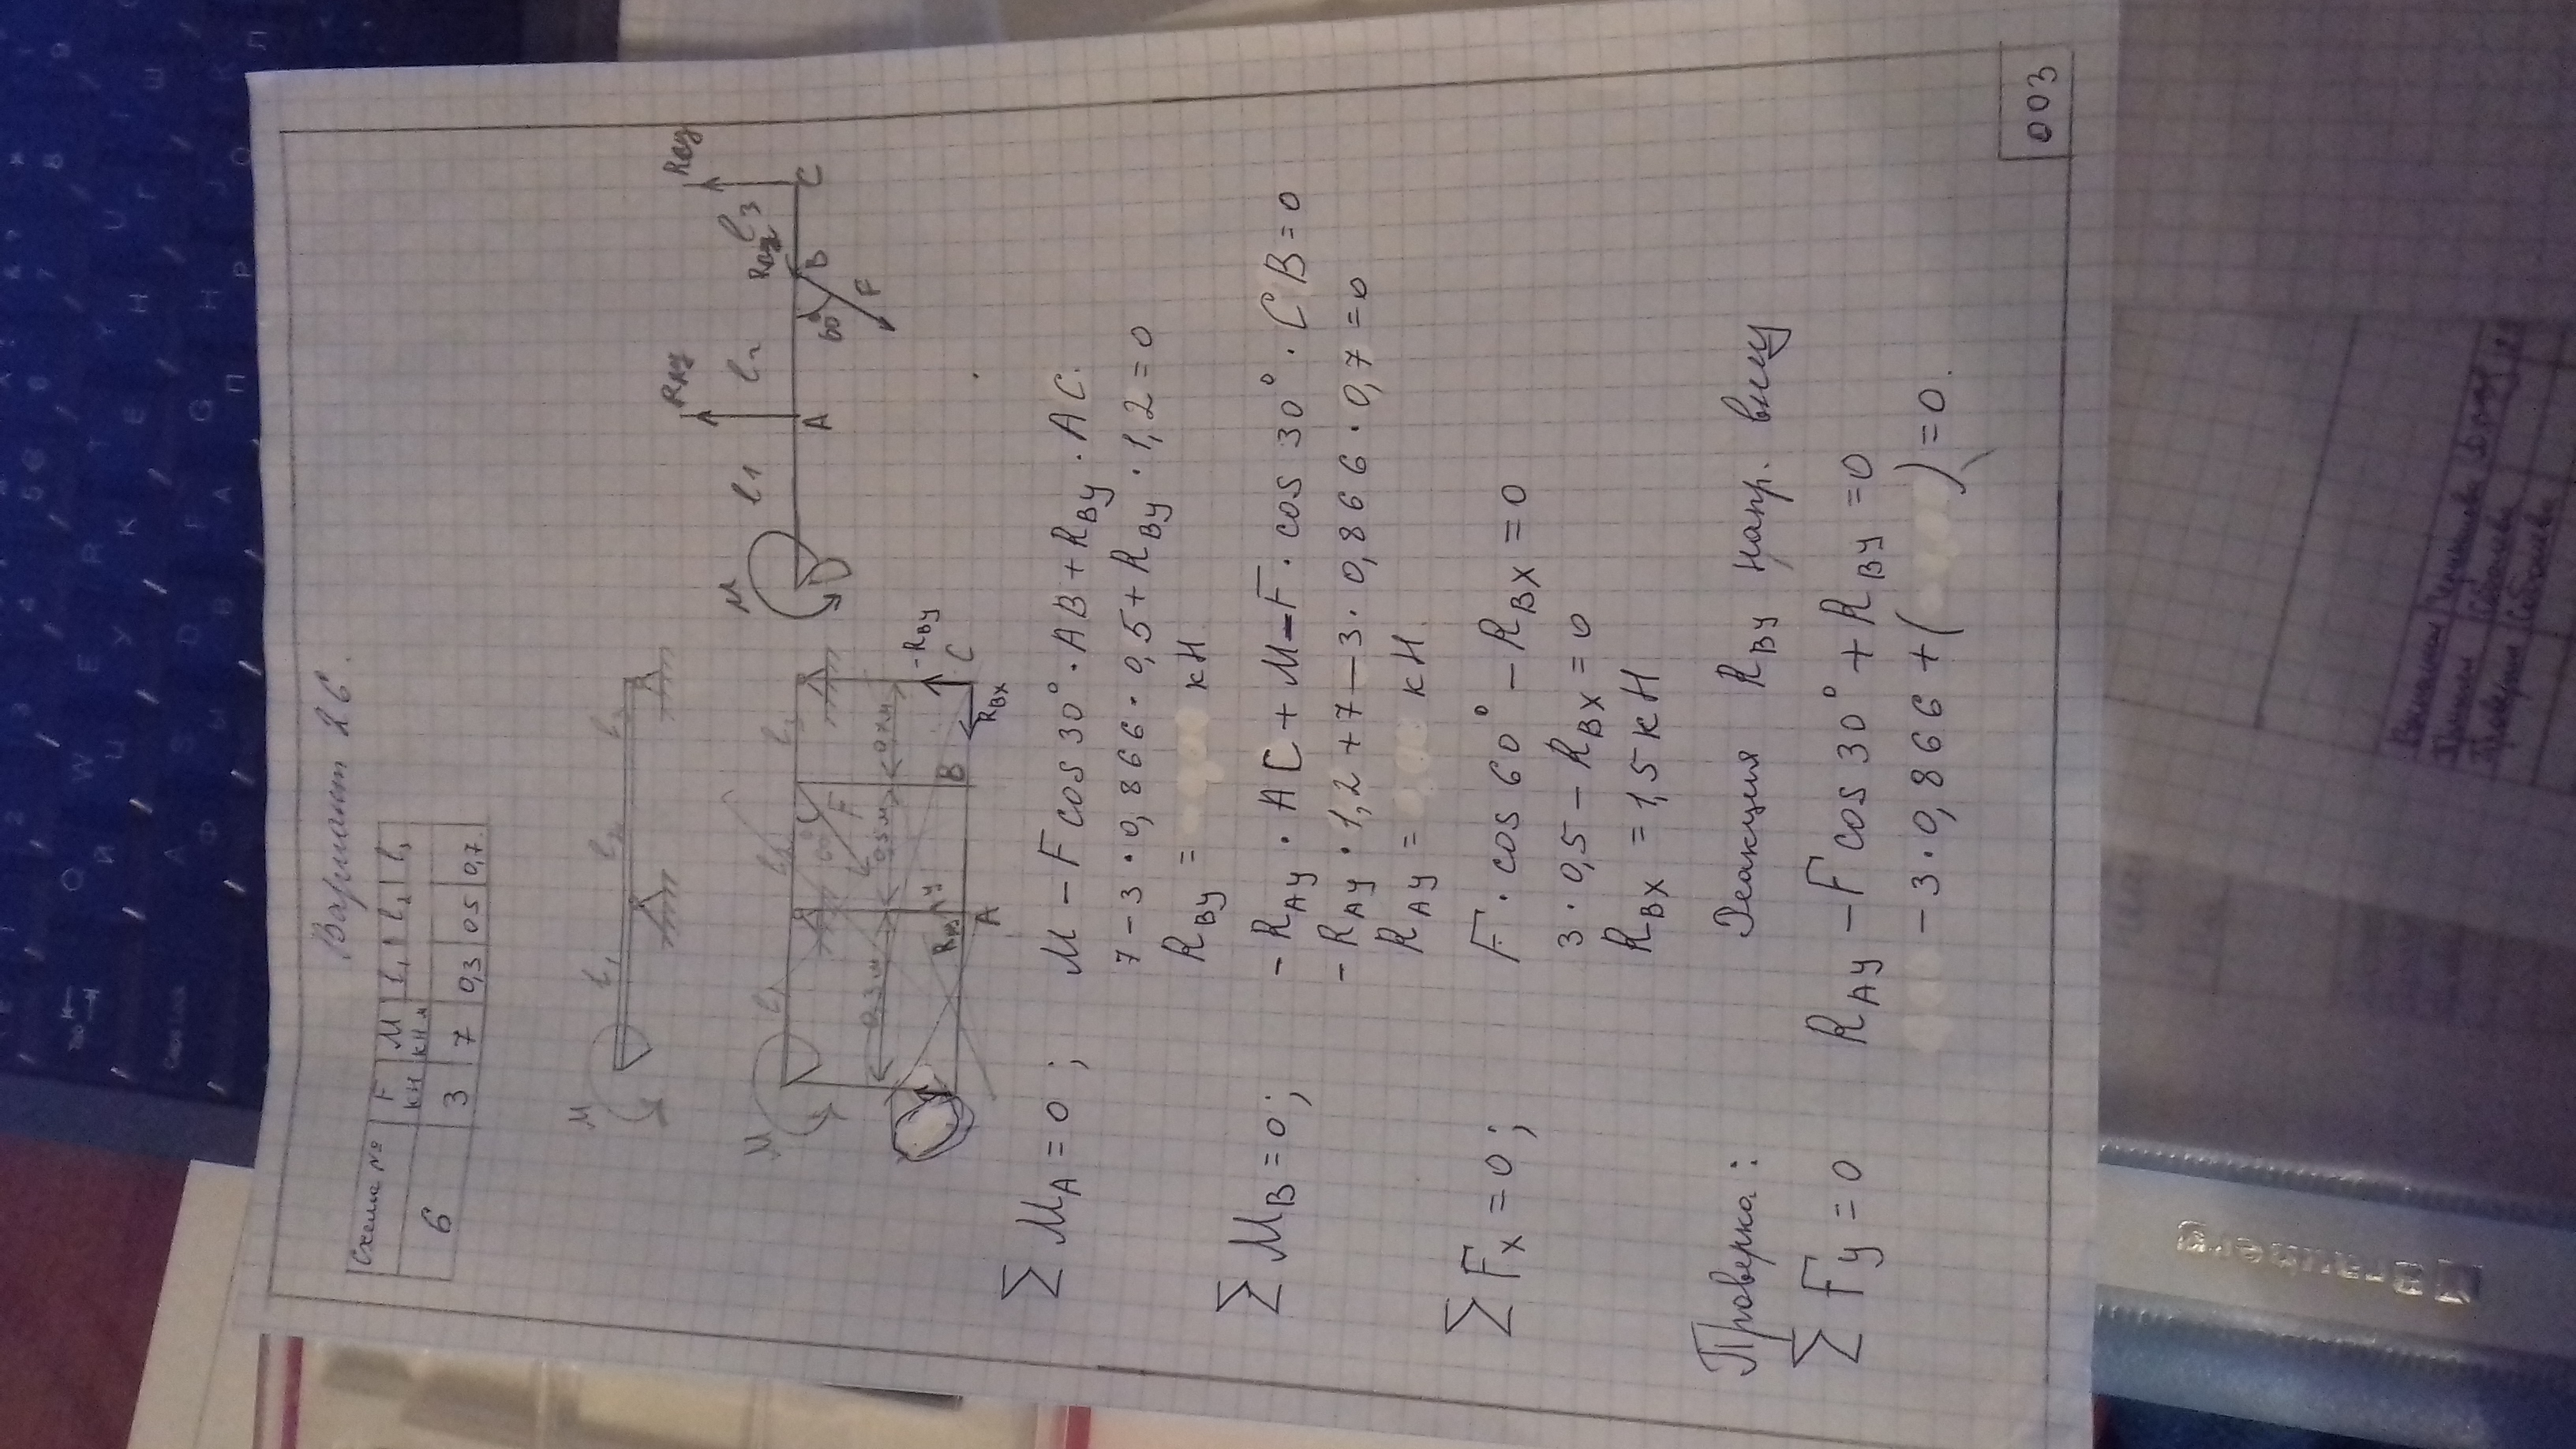 Вариант 26.
Схема № F кН M кНм l1 l2 l3
6 3 7 0,3 0,5 0,7
M l1 l2 l3
M l1 l2 l3
60° F
0,3м 0,5м 0,7м
RAy -RBy
A B C
RBx
M l1 RAy l2 l3
A 60° B C
F
ΣMA=0; M-Fcos30°·AB+RBy·AC.
7-3·0,866·0,5+RBy·1,2=0
RBy= кН.
ΣMB=0; -RAy·AC+M-F·cos30°·CB=0
-RAy·1,2+7-3·0,866·0,7=0
RAy= кН.
ΣFx=0; F·cos60°-RBx=0
3·0,5-RBx=0
RBx=1,5кН
Проверка: Реакция RBy напр. вниз
ΣFy=0 RAy-Fcos30°+RBy=0
-3·0,866+( )=0.
003
Braunberg